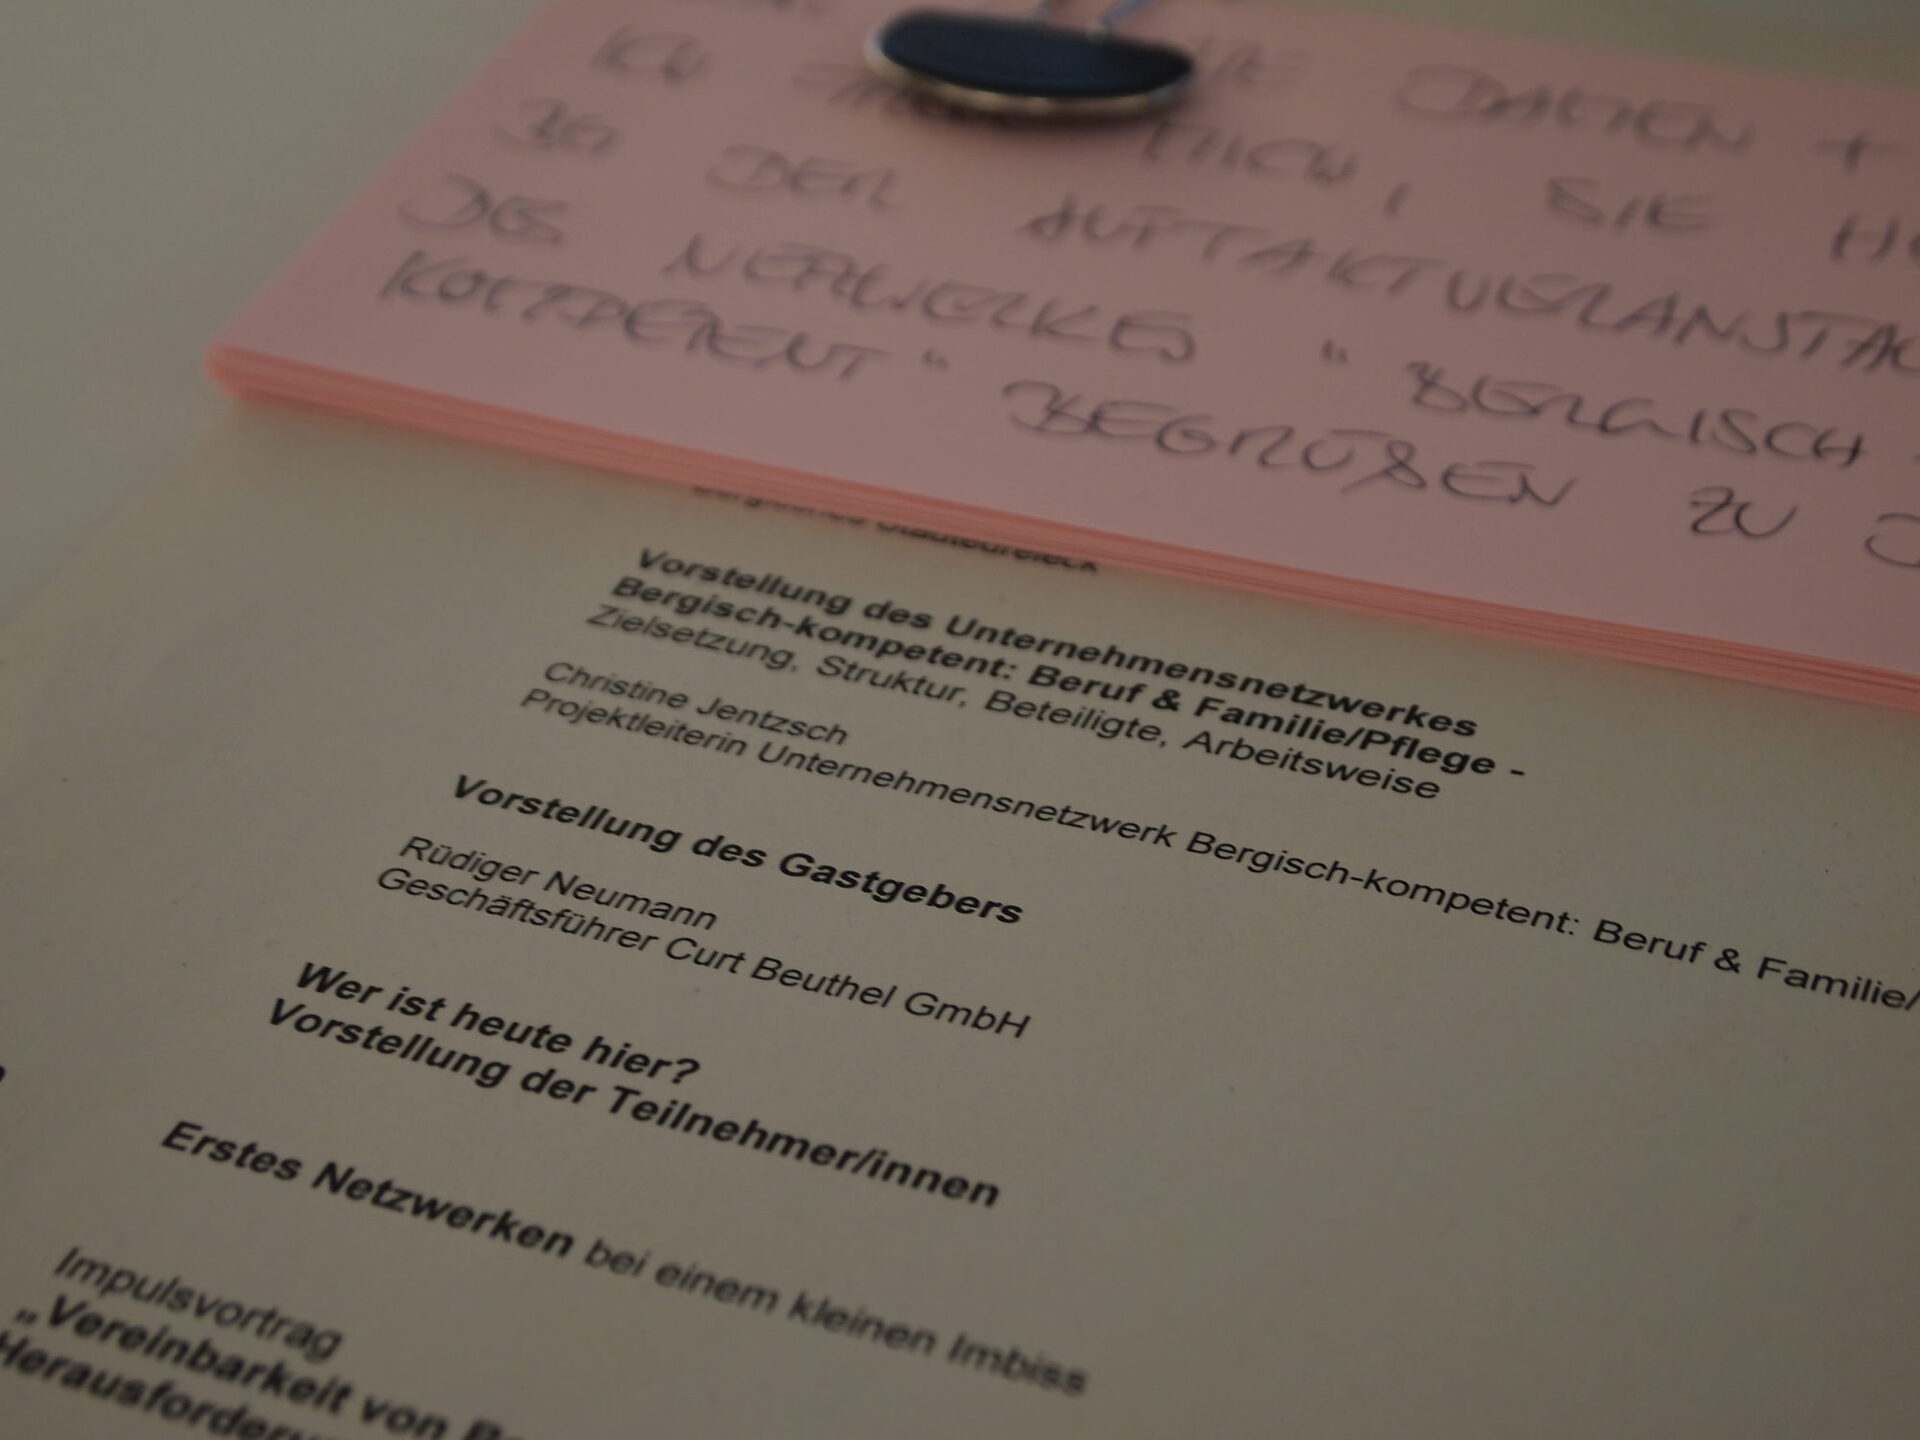 DAMEN +
ICH FREUE MICH, SIE H
BEI DER AUFTAKTVERANSTAL
DES NETZWERKES "BERGISCH
KOMPETENT" BEGRÜßEN ZU D
Bergisches Städtedreieck
Vorstellung des Unternehmensnetzwerkes
Bergisch-kompetent: Beruf & Familie/Pflege -
Zielsetzung, Struktur, Beteiligte, Arbeitsweise
Christine Jentzsch
Projektleiterin Unternehmensnetzwerk Bergisch-kompetent: Beruf & Familie/
Vorstellung des Gastgebers
Rüdiger Neumann
Geschäftsführer Curt Beuthel GmbH
Wer ist heute hier?
Vorstellung der Teilnehmer/innen
Erstes Netzwerken bei einem kleinen Imbiss
Impulsvortrag
„Vereinbarkeit von Be
Herausforderu